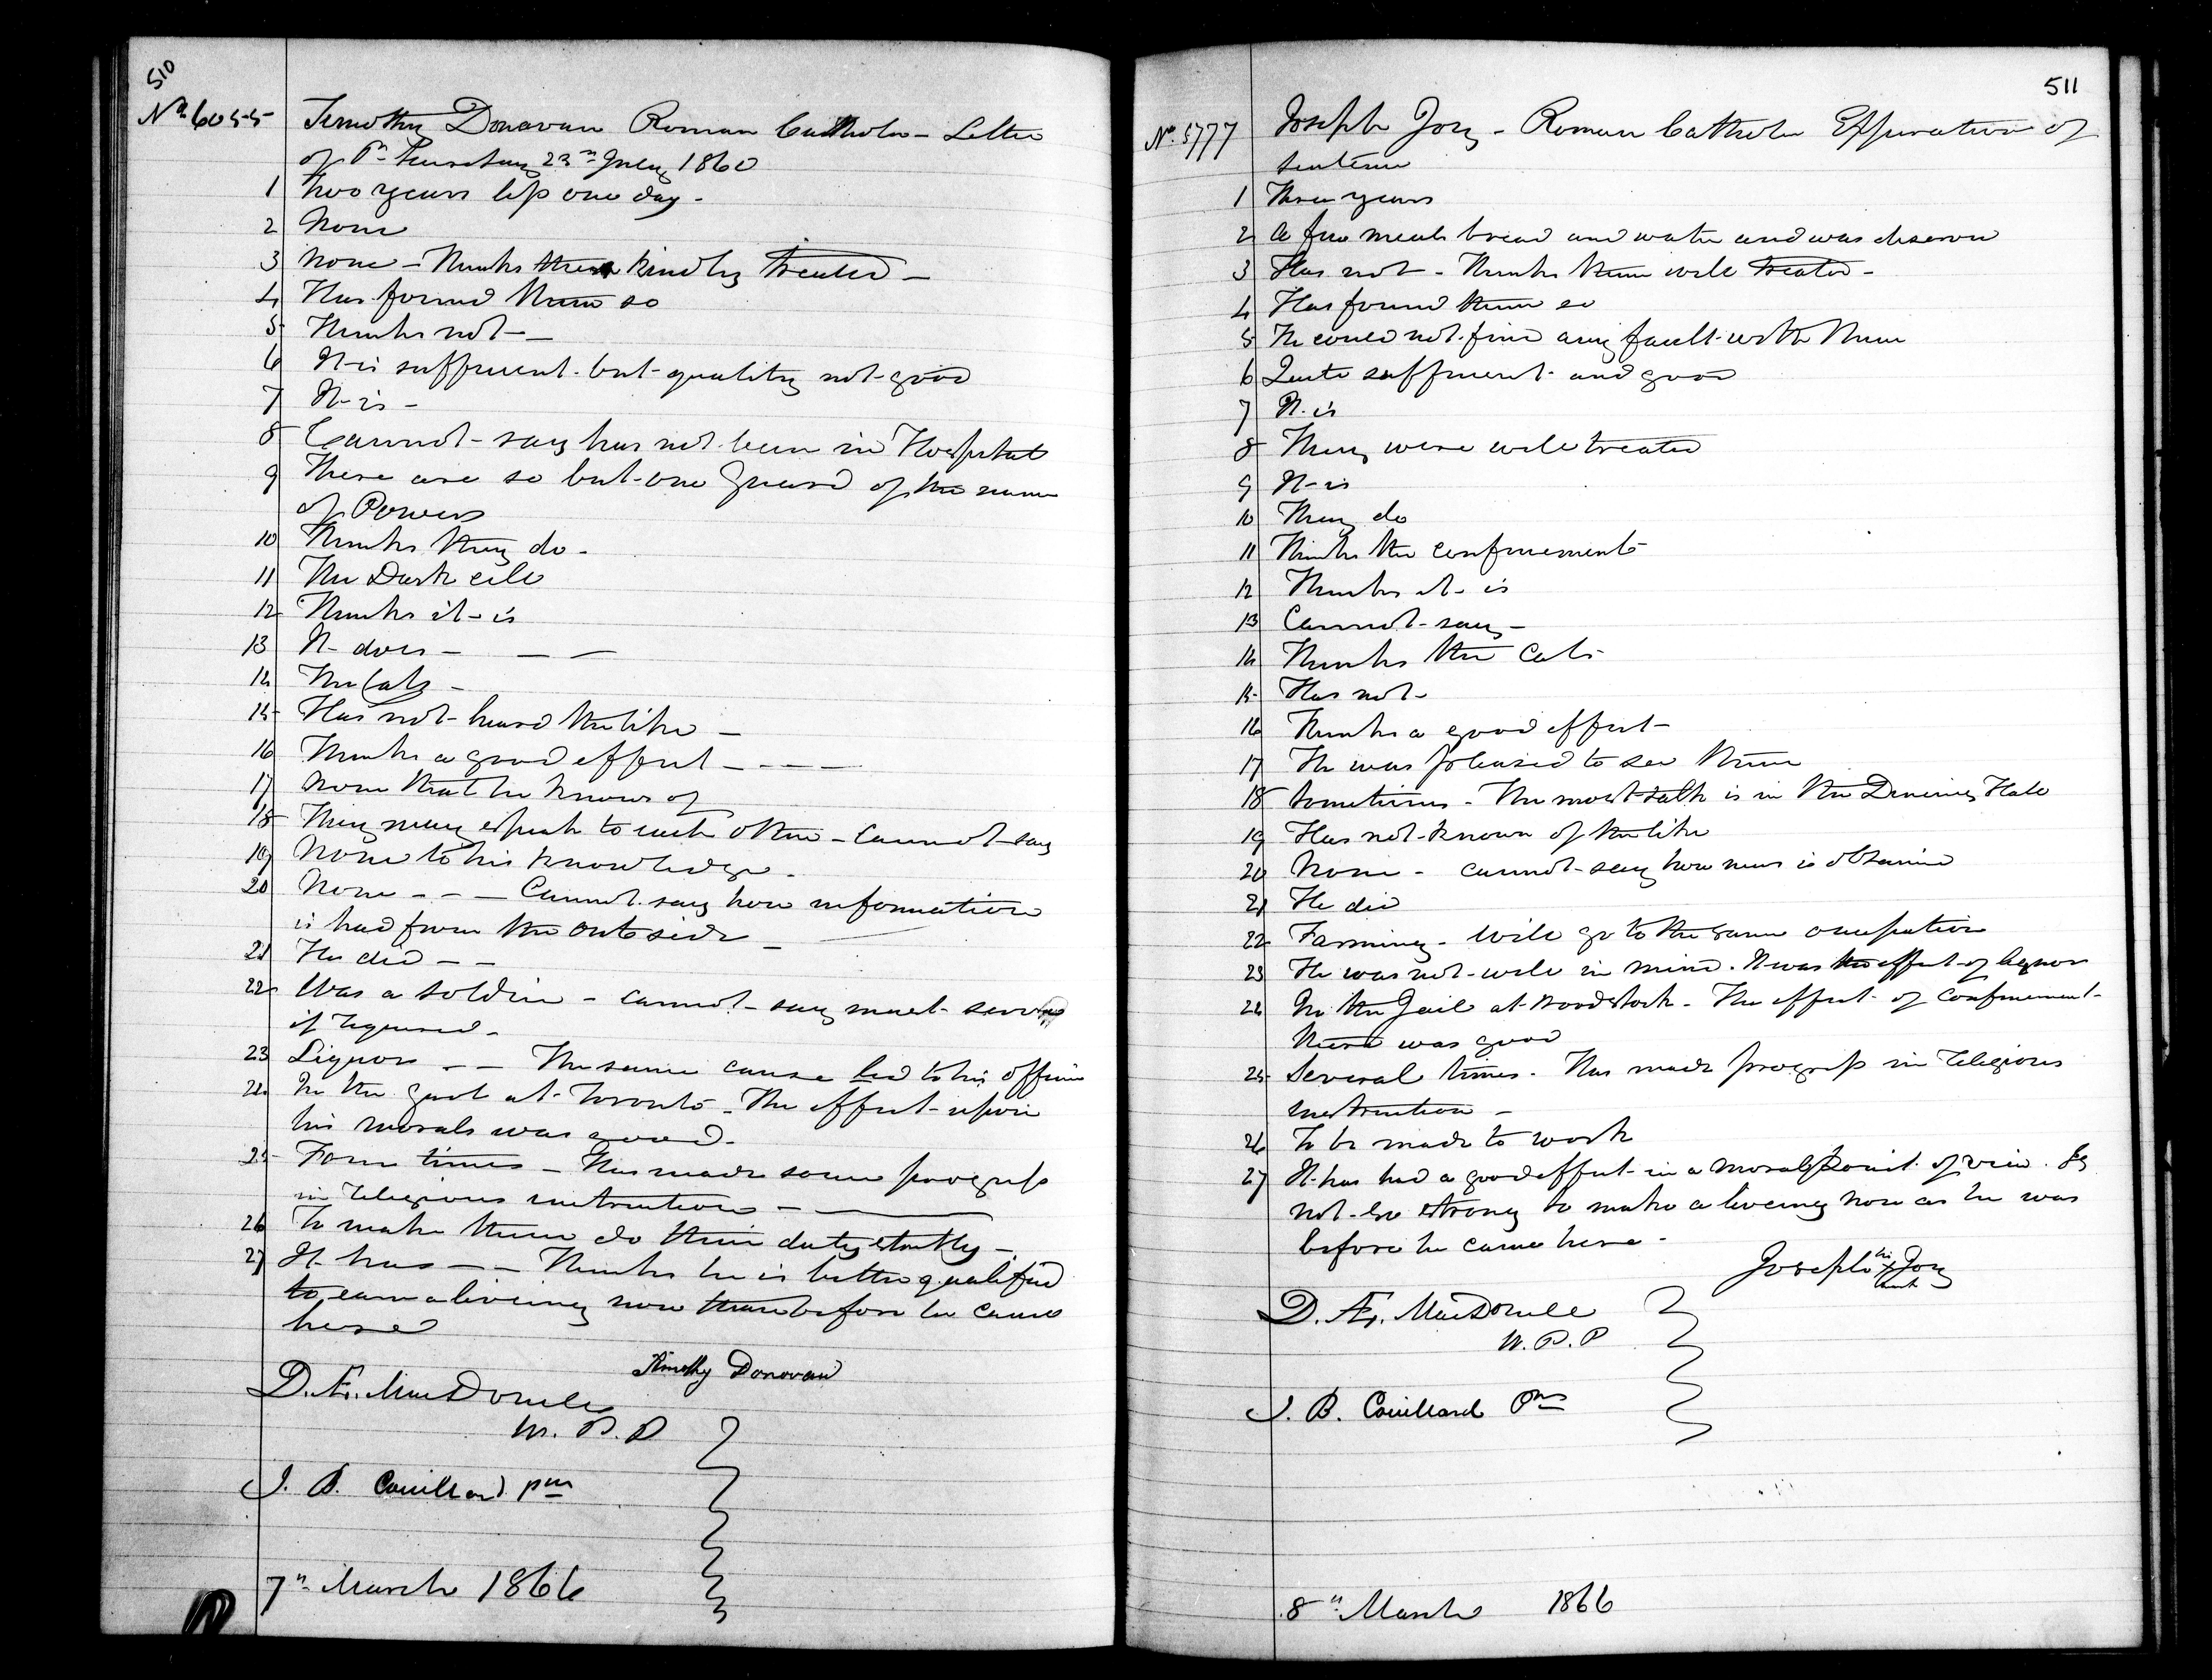 510
No 6055 Timothy Donavan Roman Catholic - Letter
of Pr Secretary 23rd 1860
1 Two years less one day -
2 None
3 None - Thinks them kindly treated -
4 Has found them so
5 Thinks not -
6 It is sufficient - but quality not good
7 It is -
8 Cannot - say has not been in Hospital
9 There are so but one Guard of the name
of Powers
10 Thinks they do -
11 The Dark cell
12 Thinks it is
13 It does -
14 The Cats -
15 Has not heard the like -
16 Thinks a good effect - - - -
17 None that he knows of
18 They may speak to each other - Cannot say
19 None to his knowledge -
20 None - - - Cannot say how information
is had from the outside -
21 He did - -
22 Was a soldier - cannot say must serve
if required -
23 Liquor - - The same cause led to his offence
24 In the gaol at Toronto - The effect upon
his morals was good -
25 Four times - Has made some progress
in religious instruction -
26 To make them do their duty strictly -
27 It has - - Thinks he is better qualified
to earn a liveing now than before he came
here
Timothy Donovan
D. Æ. MacDonell
W. P. P
J. B. Couillard pm
7th March 1866
511
No 5777 Joseph Jory - Roman Catholic Expiration of
sentence
1 Three years
2 A few meals bread and water and was
3 Has not - Thinks them well treated -
4 Has found them so
5 He could not find any fault with them
6 Quite sufficient and good
7 It is
8 They were well treated
9 It is
10 They do
11 Thinks the confinement
12 Thinks it is
13 Cannot say -
14 Thinks the Cats
15 Has not -
16 Thinks a good effect -
17 He was pleased to see them
18 Sometimes - The most talk is in the Dineing Hall
19 Has not known of the like
20 None - cannot say how news is obtained
21 He did
22 Farming - will go to the same occupation
23 He was not well in mind. It was the effect of liquor
24 In the Jail at Woodstock - The effect of confinement
there was good
25 Several times - Has made progress in religious
instruction -
26 To be made to work
27 It has had a good effect in a moral point of view. Is
not so strong to make a liveing now as he was
before he came here -
Joseph his X mark Jory
D. Æ. MacDonell
W. P. P
J. B. Couillard Pm
8th March 1866